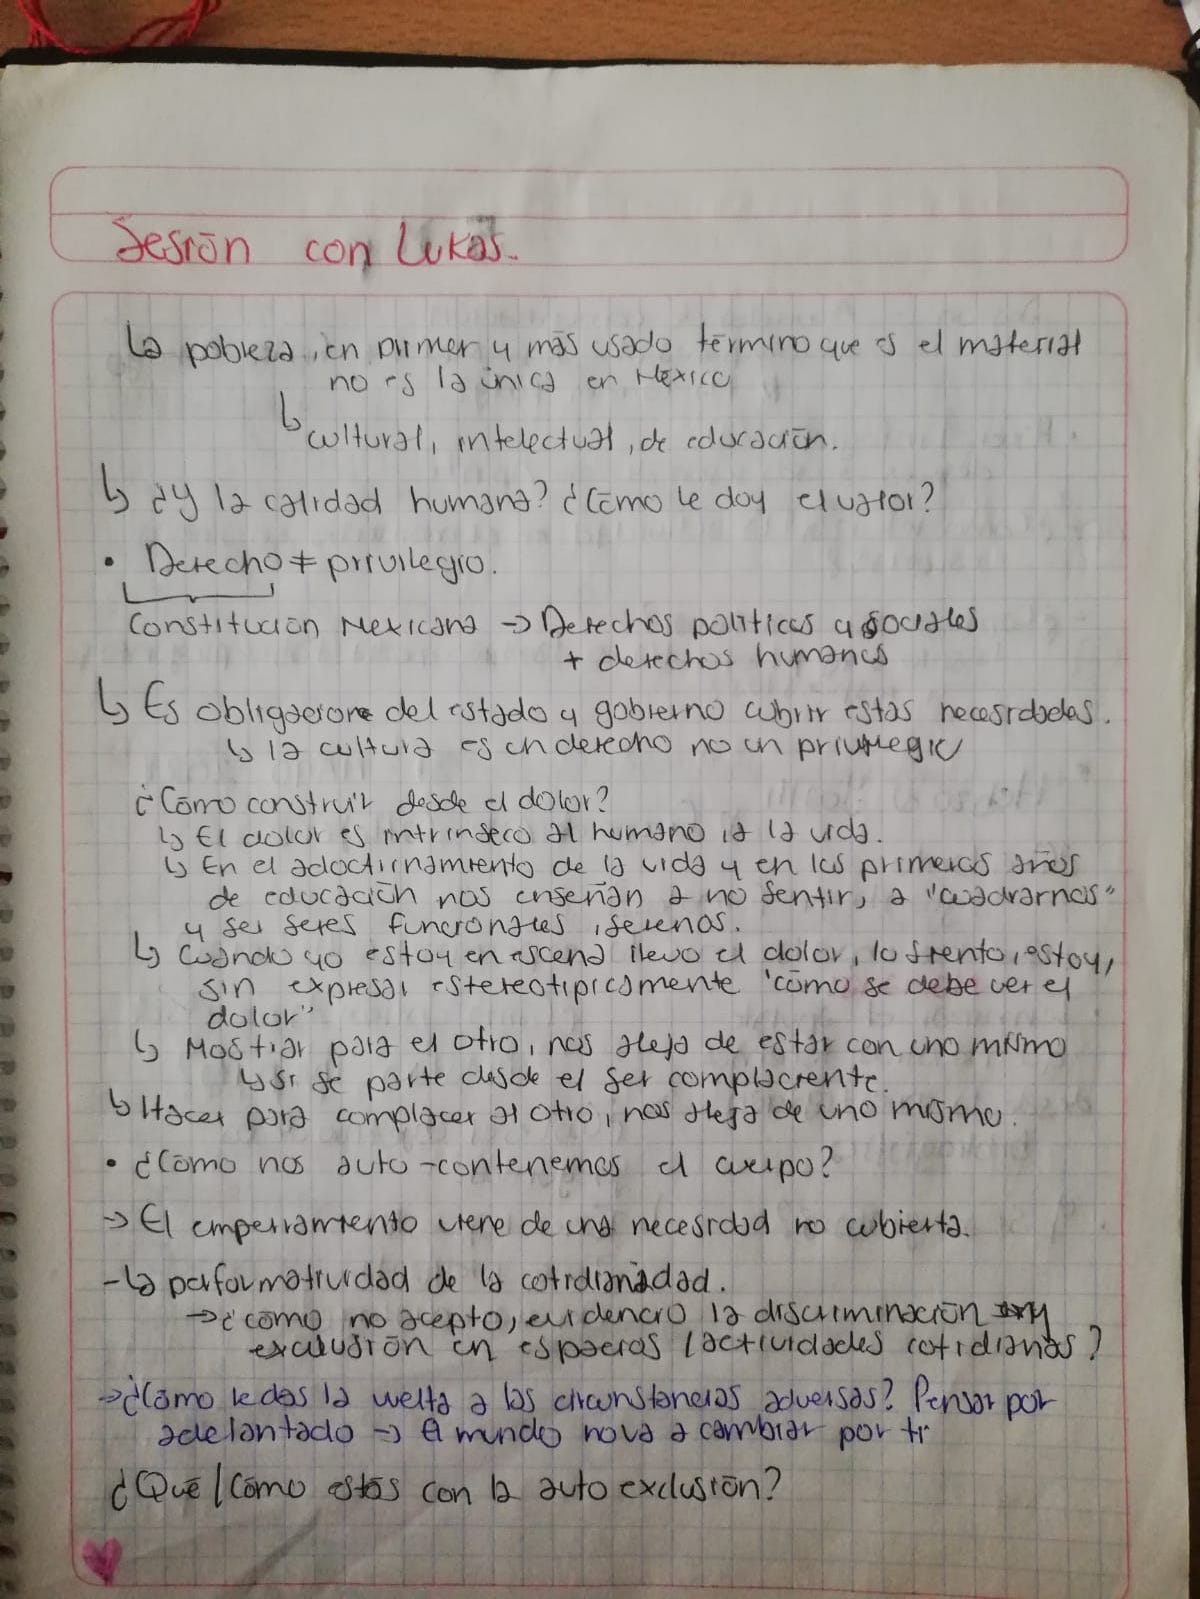 Sesión con Lukas.
La pobreza, en primer y más usado término que es el material
no es la única en México
↳ cultural, intelectual, de educación.
↳ ¿Y la calidad humana? ¿Cómo le doy el valor?
• Derecho ≠ privilegio.
Constitución Mexicana → Derechos políticos y sociales
+ derechos humanos
↳ Es obligación del estado y gobierno cubrir estas necesidades.
↳ la cultura es un derecho no un privilegio
¿Cómo construir desde el dolor?
↳ El dolor es intrínseco al humano, a la vida.
↳ En el adoctrinamiento de la vida y en los primeros años
de educación nos enseñan a no sentir, a "cuadrarnos"
y ser seres funcionales, serenos.
↳ Cuando yo estoy en escena llevo el dolor, lo siento, estoy,
sin expresar estereotipicamente "cómo se debe ver el
dolor"
↳ Mostrar para el otro, nos aleja de estar con uno mismo
↳ si se parte desde el ser complaciente.
↳ Hacer para complacer al otro, nos aleja de uno mismo.
• ¿Cómo nos auto-contenemos el cuerpo?
→ El emperramiento viene de una necesidad no cubierta.
- La performatividad de la cotidianidad.
→ ¿cómo no acepto, evidencio la discriminación y
exclusión en espacios / actividades cotidianas?
→ ¿Cómo le das la vuelta a las circunstancias adversas? Pensar por
adelantado → El mundo no va a cambiar por ti
¿Qué / Cómo estás con la auto exclusión?